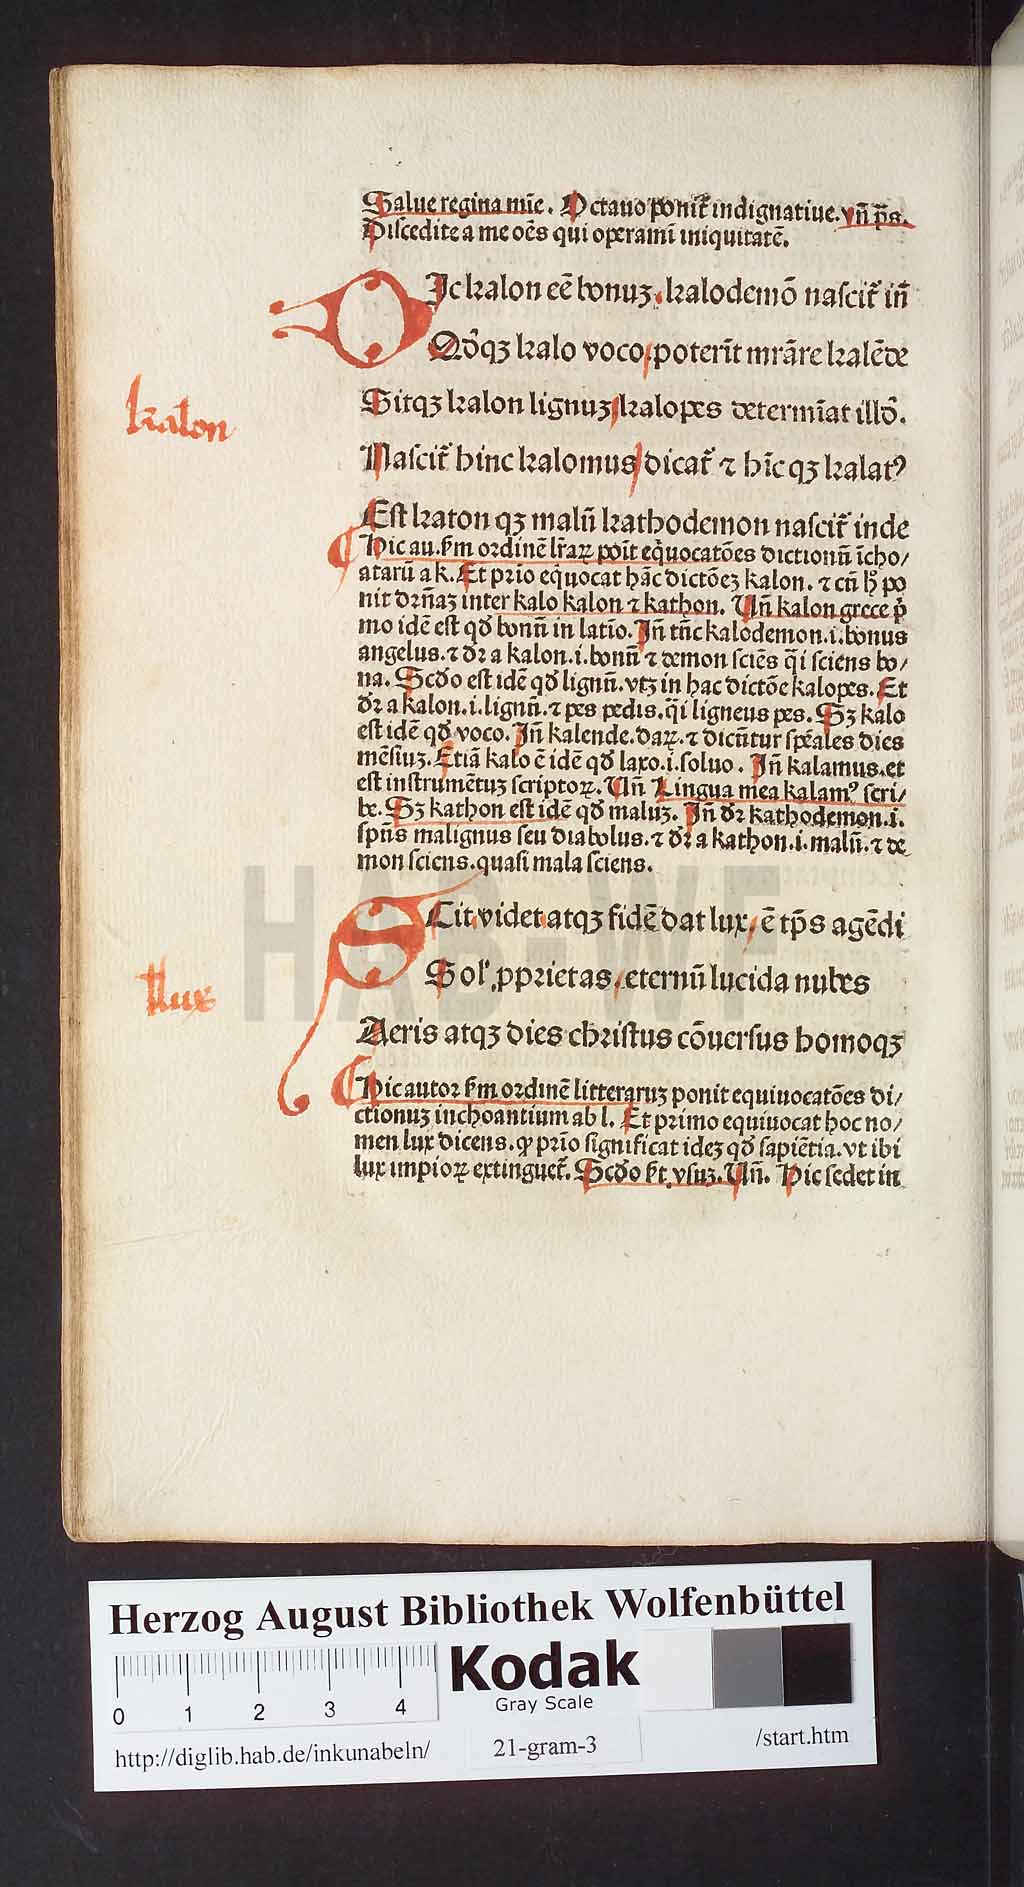 Salue regina mīe. Octauo ponit᷑ indignatiue. vn̄ p̄s.
Discedite a me oēs qui operamī iniquitatē.
DIc kalon eē bonuꝫ. kalodemō nascit᷑ in̄
Qd̓qꝫ kalo voco poterīt mr̄are kalēde
kalon
Sitqꝫ kalon lignuꝫ kalopes determīat illd̓.
Nascit᷑ hinc kalomus dicat᷑ ⁊ hīc qꝫ kalatꝰ
Est katon qꝫ malū kathodemon nascit᷑ inde
Hic au. ẜm ordinē lr̄aꝝ poīt eq̄uocatōes dictionū īcho/
atarū a k. Et prīo eq̄uocat hāc dictōeꝫ kalon. ⁊ cū h̓ po
nit dr̄n̄aꝫ inter kalo kalon ⁊ kathon. Un̄ kalon grece p̓
mo idē est qd̓ bonū in latīo. Jn̄ tn̄c kalodemon .i. bonus
angelus. ⁊ dr̄ a kalon .i. bonū ⁊ demon sciēs q̄i sciens bo/
na. Scd̓o est idē qd̓ lignū. vtꝫ in hac dictōe kalopes. Et
dr̄ a kalon .i. lignū. ⁊ pes pedis. q̄i ligneus pes. Sꝫ kalo
est idē qd̓ voco. Jn̄ kalende. daꝝ. ⁊ dicūtur sp̄eales dies
mēsiuꝫ. Etiā kalo ē idē qd̓ laxo .i. soluo. Jn̄ kalamus. et
est instrumētuꝫ scriptoꝝ. Un̄ Lingua mea kalamꝰ scri/
be. Sꝫ kathon est idē qd̓ maluꝫ. Jn̄ dr̄ kathodemon .i.
sp̄ūs malignus seu diabolus. ⁊ dr̄ a kathon .i. malū. ⁊ de
mon sciens. quasi mala sciens.
SCit videt atqꝫ fidē dat lux, ē tp̄s agēdi
Sol ꝓprietas, eternū lucida nubes
lux
Aeris atqꝫ dies christus cōuersus homoqꝫ
Hic autor ẜm ordinē litteraruꝫ ponit equiuocatōes di/
ctionuꝫ inchoantium ab l. Et primo equiuocat hoc no/
men lux dicens. ꝙ prīo significat ideꝫ qd̓ sapiētia. vt ibi
lux impioꝝ extinguet᷑. Scd̓o ẜt vsuꝫ. Un̄. Hic sedet in
HAB-WF
Herzog August Bibliothek Wolfenbüttel
Kodak
Gray Scale
0 1 2 3 4
http://diglib.hab.de/inkunabeln/ 21-gram-3 /start.htm